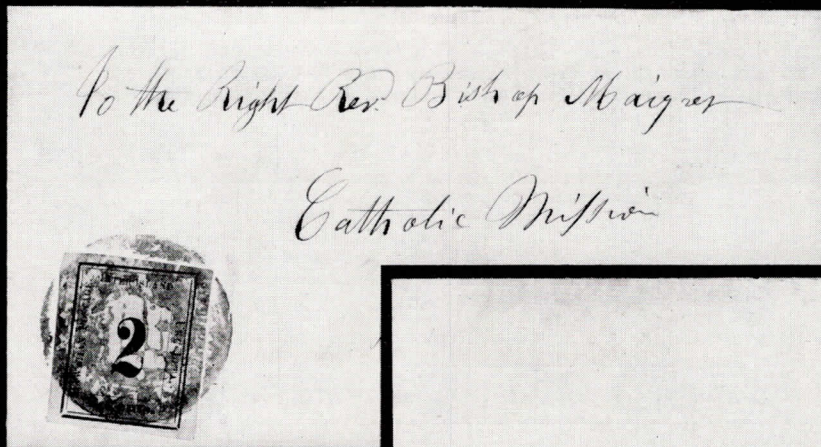 To the Right Rev. Bishop Maigret
Catholic Mission
2